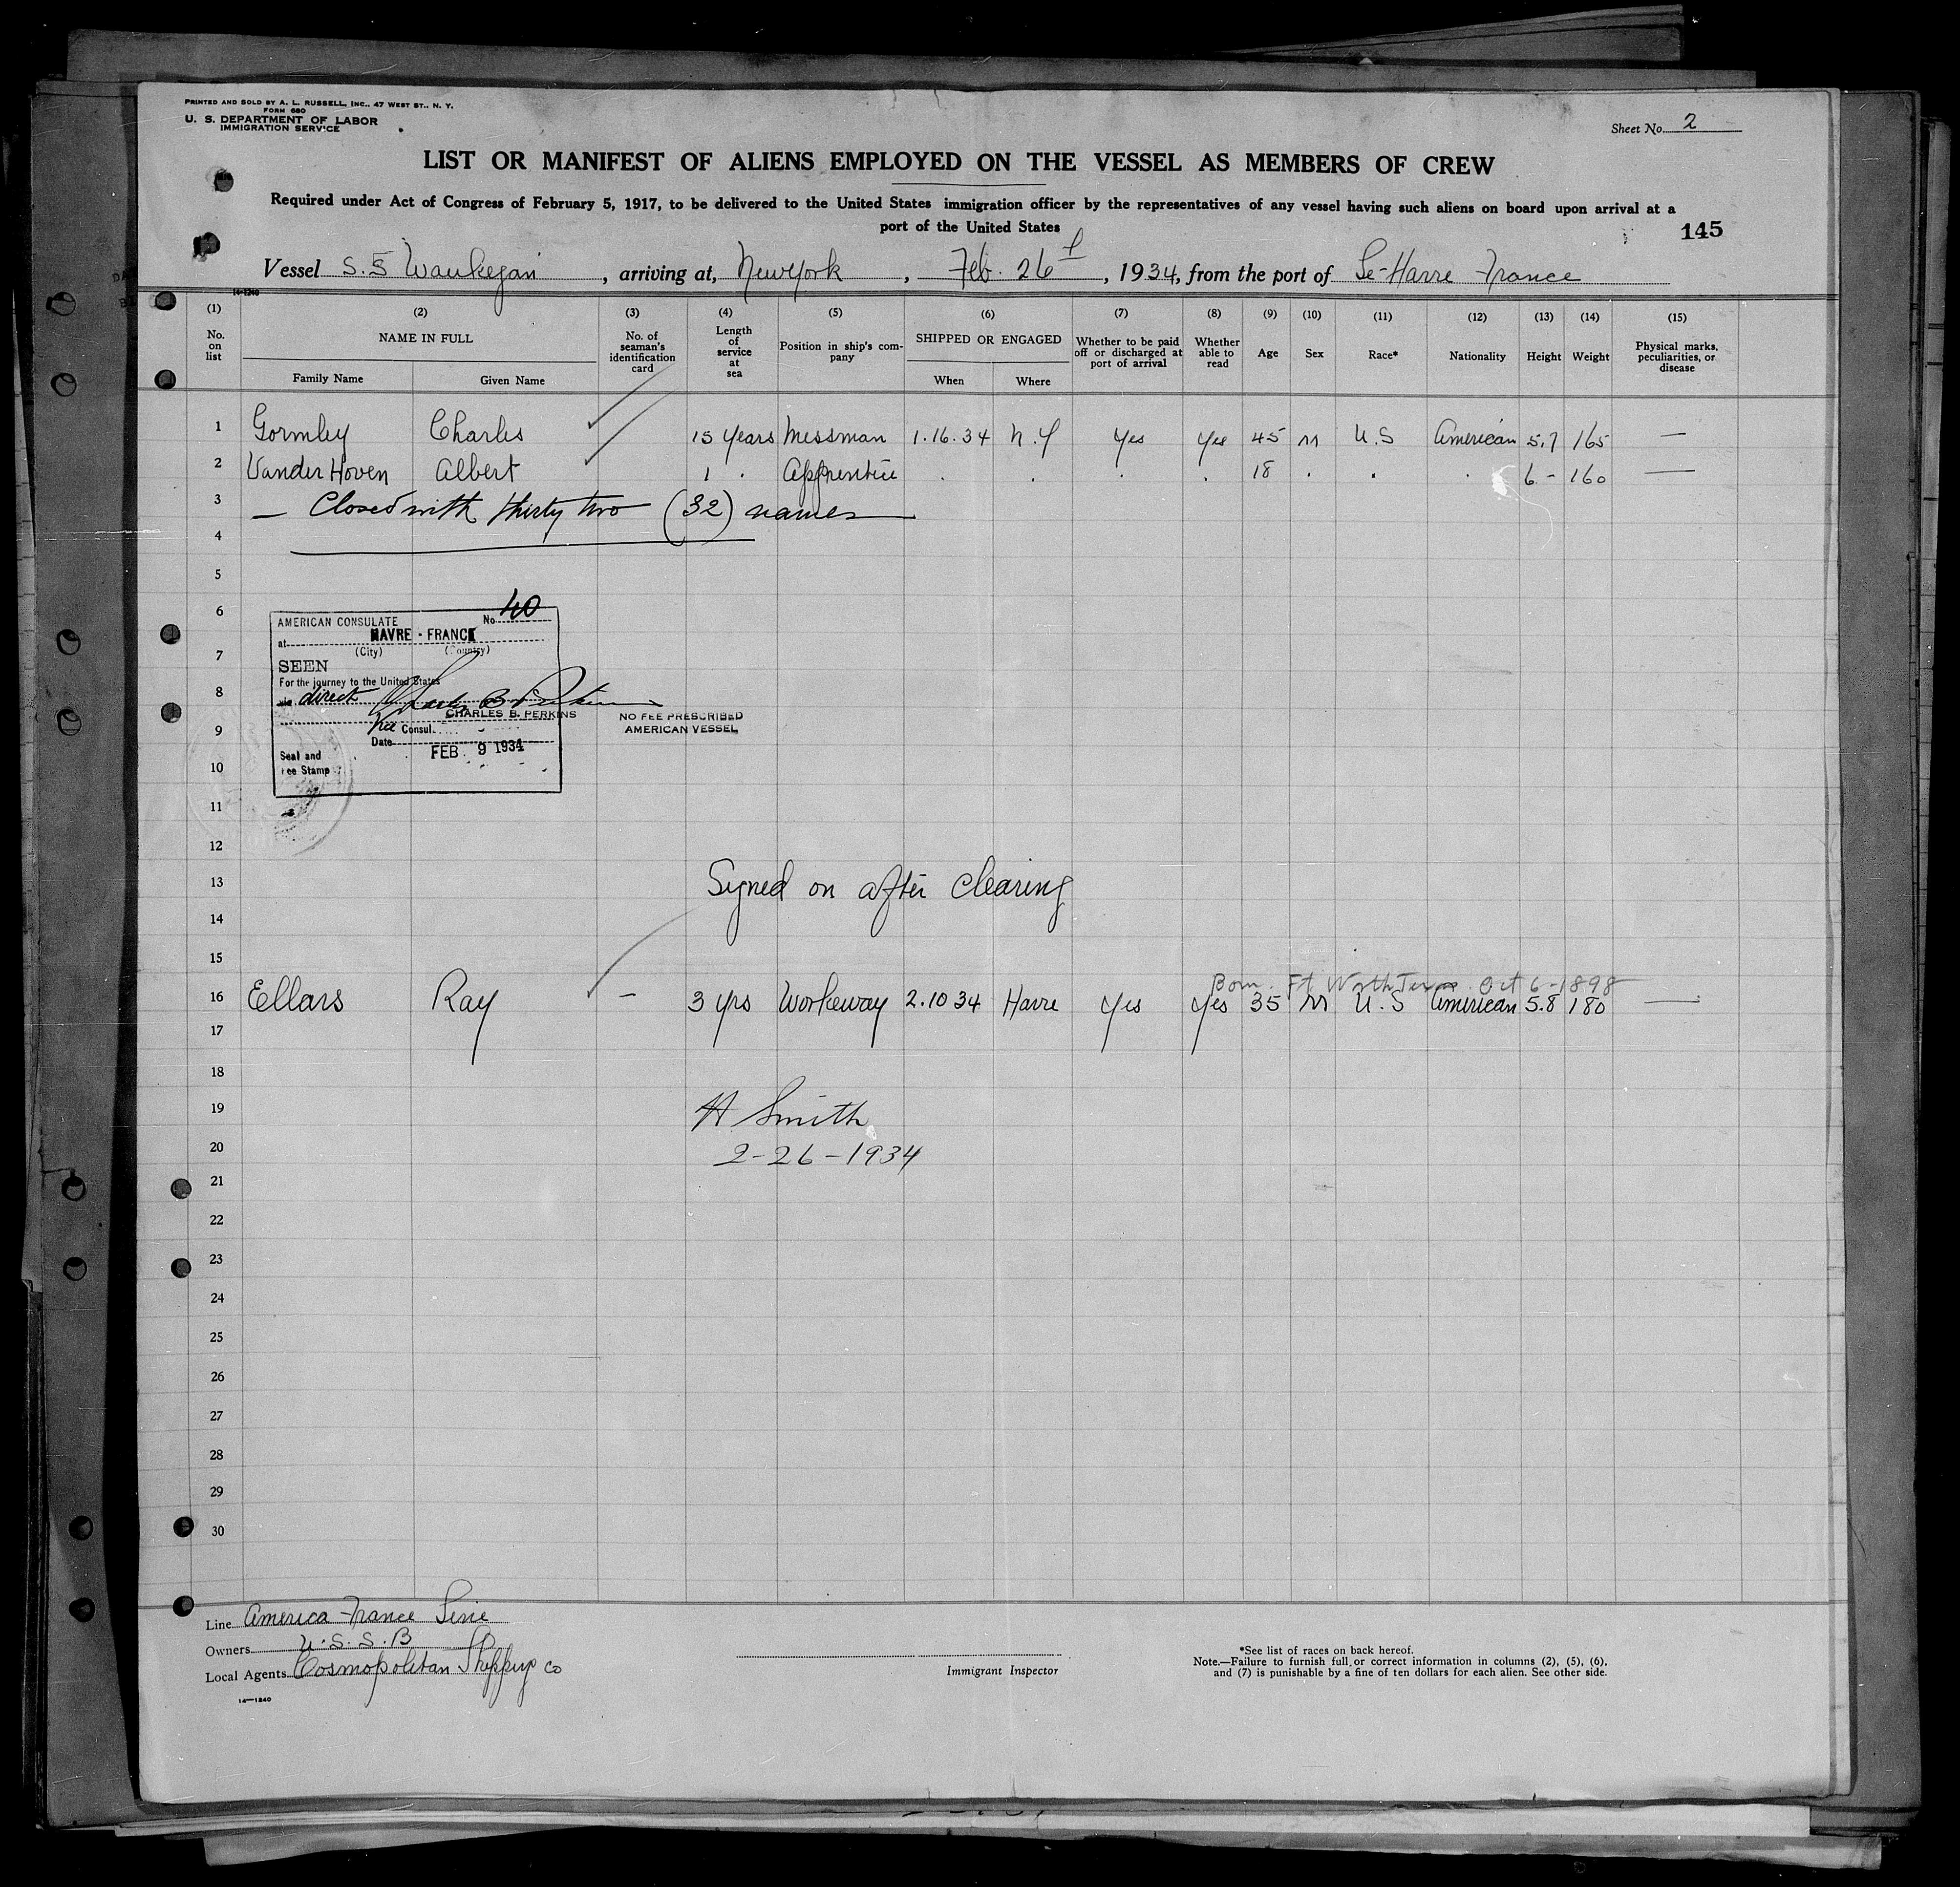 PRINTED AND SOLD BY A. L. RUSSELL, INC., 47 WEST ST., N. Y.
FORM 680
U. S. DEPARTMENT OF LABOR
IMMIGRATION SERVICE
Sheet No. 2
LIST OR MANIFEST OF ALIENS EMPLOYED ON THE VESSEL AS MEMBERS OF CREW
Required under Act of Congress of February 5, 1917, to be delivered to the United States immigration officer by the representatives of any vessel having such aliens on board upon arrival at a
port of the United States
145
Vessel S.S Waukegan, arriving at, New York, Feb. 26, 1934, from the port of Le-Havre France
14-1240
(1) (2) (3) (4) (5) (6) (7) (8) (9) (10) (11) (12) (13) (14) (15)
No. on list NAME IN FULL No. of seaman's identification card Length of service at sea Position in ship's company SHIPPED OR ENGAGED Whether to be paid off or discharged at port of arrival Whether able to read Age Sex Race* Nationality Height Weight Physical marks, peculiarities, or disease
Family Name Given Name When Where
1 Gormley Charles 15 years Messman 1.16.34 N.Y Yes Yes 45 M U.S American 5.7 165 —
2 Vander Hoven Albert 1 . Apprentice . . . . 18 . . . 6 - 160 —
3 — Closed with thirty two (32) names —
4
5
6
7
8
9
10
11
12
AMERICAN CONSULATE No. 40
at HAVRE - FRANCE
(City) (Country)
SEEN
For the journey to the United States
via direct Charles B Perkins
CHARLES B. PERKINS
Vice Consul
Date FEB. 9 1934
Seal and
Fee Stamp
NO FEE PRESCRIBED
AMERICAN VESSEL
13 Signed on after clearing
14
15
Born. Ft Worth Texas. Oct 6-1898
16 Ellars Ray — 3 yrs Workaway 2.10 34 Havre Yes Yes 35 M U.S American 5.8 180 —
17
18
19 H Smith
20 2-26-1934
21
22
23
24
25
26
27
28
29
30
Line America France Line
Owners U.S.S.B
Local Agents Cosmopolitan Shipping Co
14—1240
Immigrant Inspector
*See list of races on back hereof.
Note.—Failure to furnish full or correct information in columns (2), (5), (6),
and (7) is punishable by a fine of ten dollars for each alien. See other side.